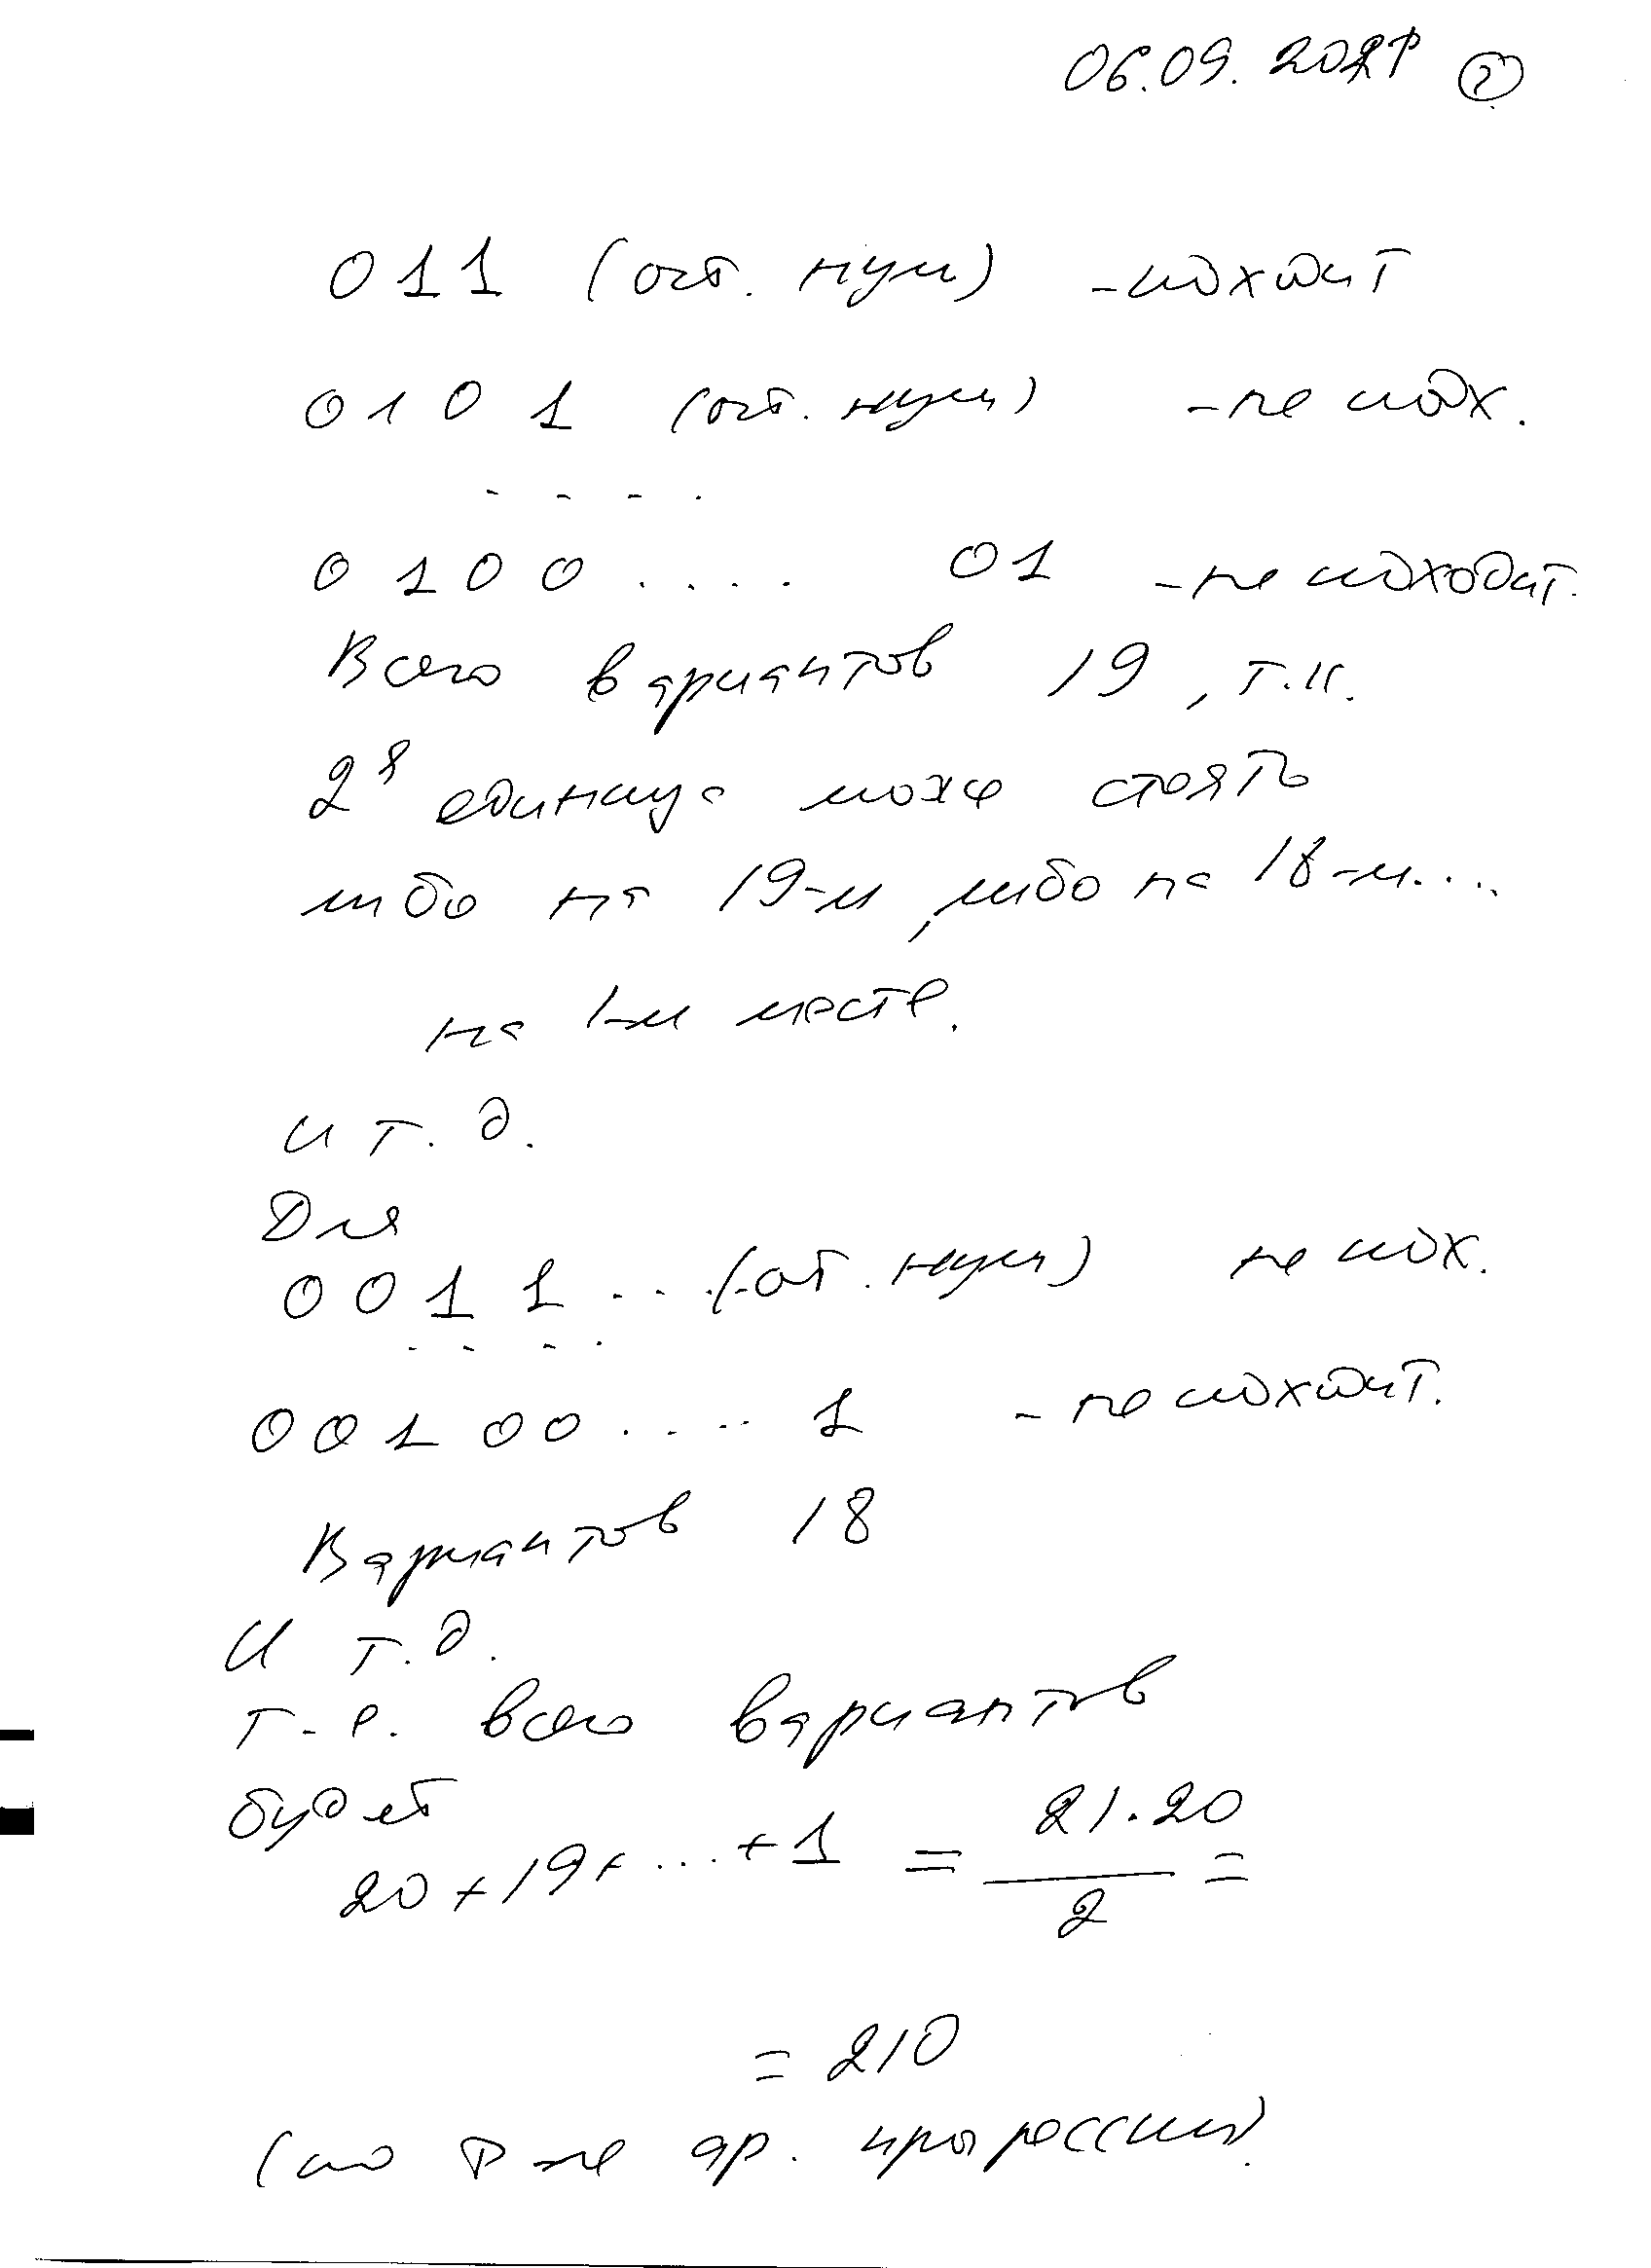 06.09.2021 ②
011 (ост. нули) - подходит
0101 (ост. нули) - не подх.
- - - .
0100 .... 01 - не подходит.
Всего вариантов 19, т.к.
2я единица може стоять
либо на 19-м, либо на 18-м....
на 1-м месте.
и т. д.
Для
0011...(ост. нули) не подх.
. - - .
00100.... 1 - не подходит.
Вариантов 18
И т.д.
т-е. всего вариантов
будет
20+19+...+1 = 21·20 / 2 =
= 210
(по ф-ле ар. прогрессии)